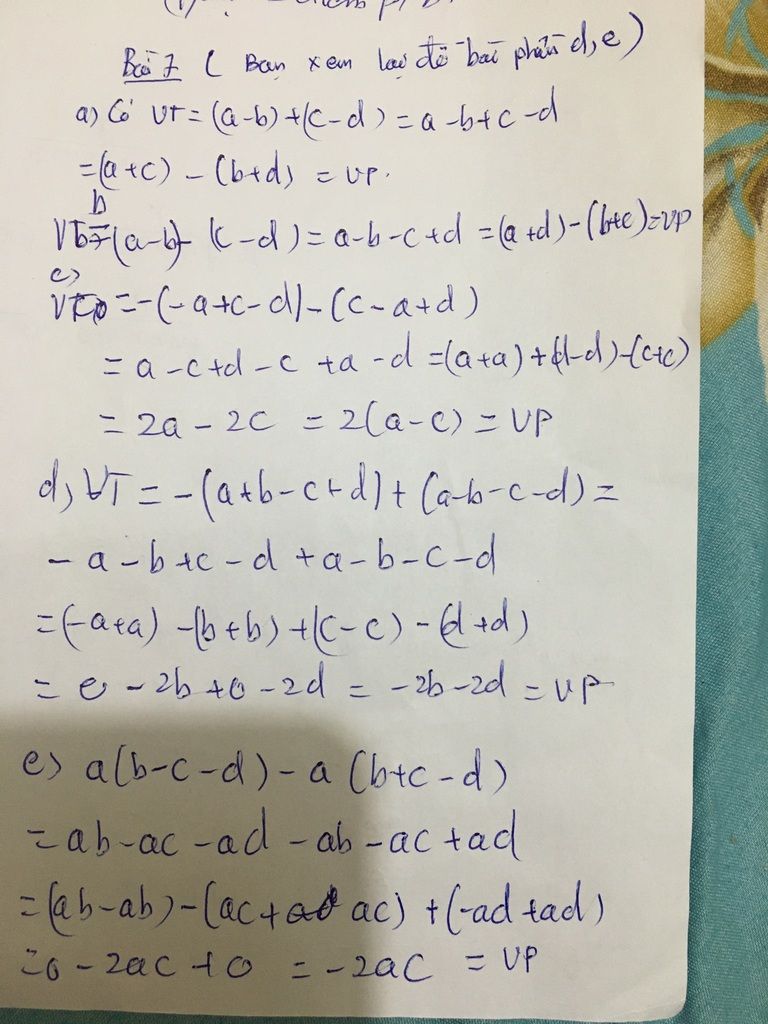 Bài 7 ( Bạn xem lại đề bài phần d,e)
a) Có VT = (a-b)+(c-d) = a-b+c-d
=(a+c) - (b+d) = VP.
b
VT=(a-b)- (c-d) = a-b-c+d =(a+d)-(b+c)=VP
c)
VT = -(-a+c-d)-(c-a+d)
= a-c+d-c +a-d =(a+a)+(d-d)-(c+c)
= 2a - 2c = 2(a-c) = VP
d, VT = -(a+b-c+d)+(a-b-c-d) =
-a-b+c-d+a-b-c-d
=(-a+a) -(b+b) +(c-c) -(d+d)
= 0 - 2b +0 -2d = -2b-2d = VP
e) a(b-c-d)-a(b+c-d)
=ab-ac-ad-ab-ac+ad
=(ab-ab)-(ac+ac) +(-ad+ad)
=0 - 2ac +0 = -2ac = VP